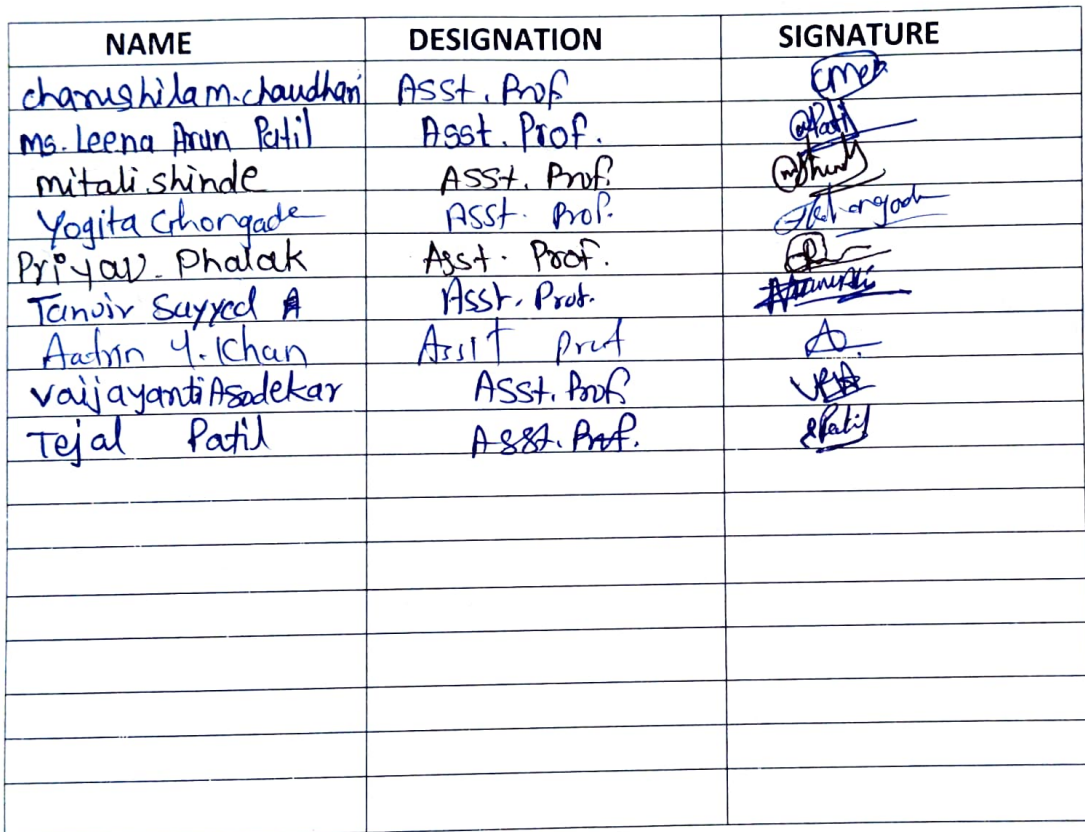 NAME DESIGNATION SIGNATURE
charushila m. chaudhari Asst. Prof
ms. Leena Arun Patil Asst. Prof. Patil
mitali shinde Asst. Prof.
Yogita Ghongade Asst. Prof.
Priya V. Phalak Asst. Prof.
Tanvir Sayyed A Asst. Prof.
Y. Khan Assit Prof
Vaijayanti Asodekar Asst. Prof
Tejal Patil Asst. Prof. Patil